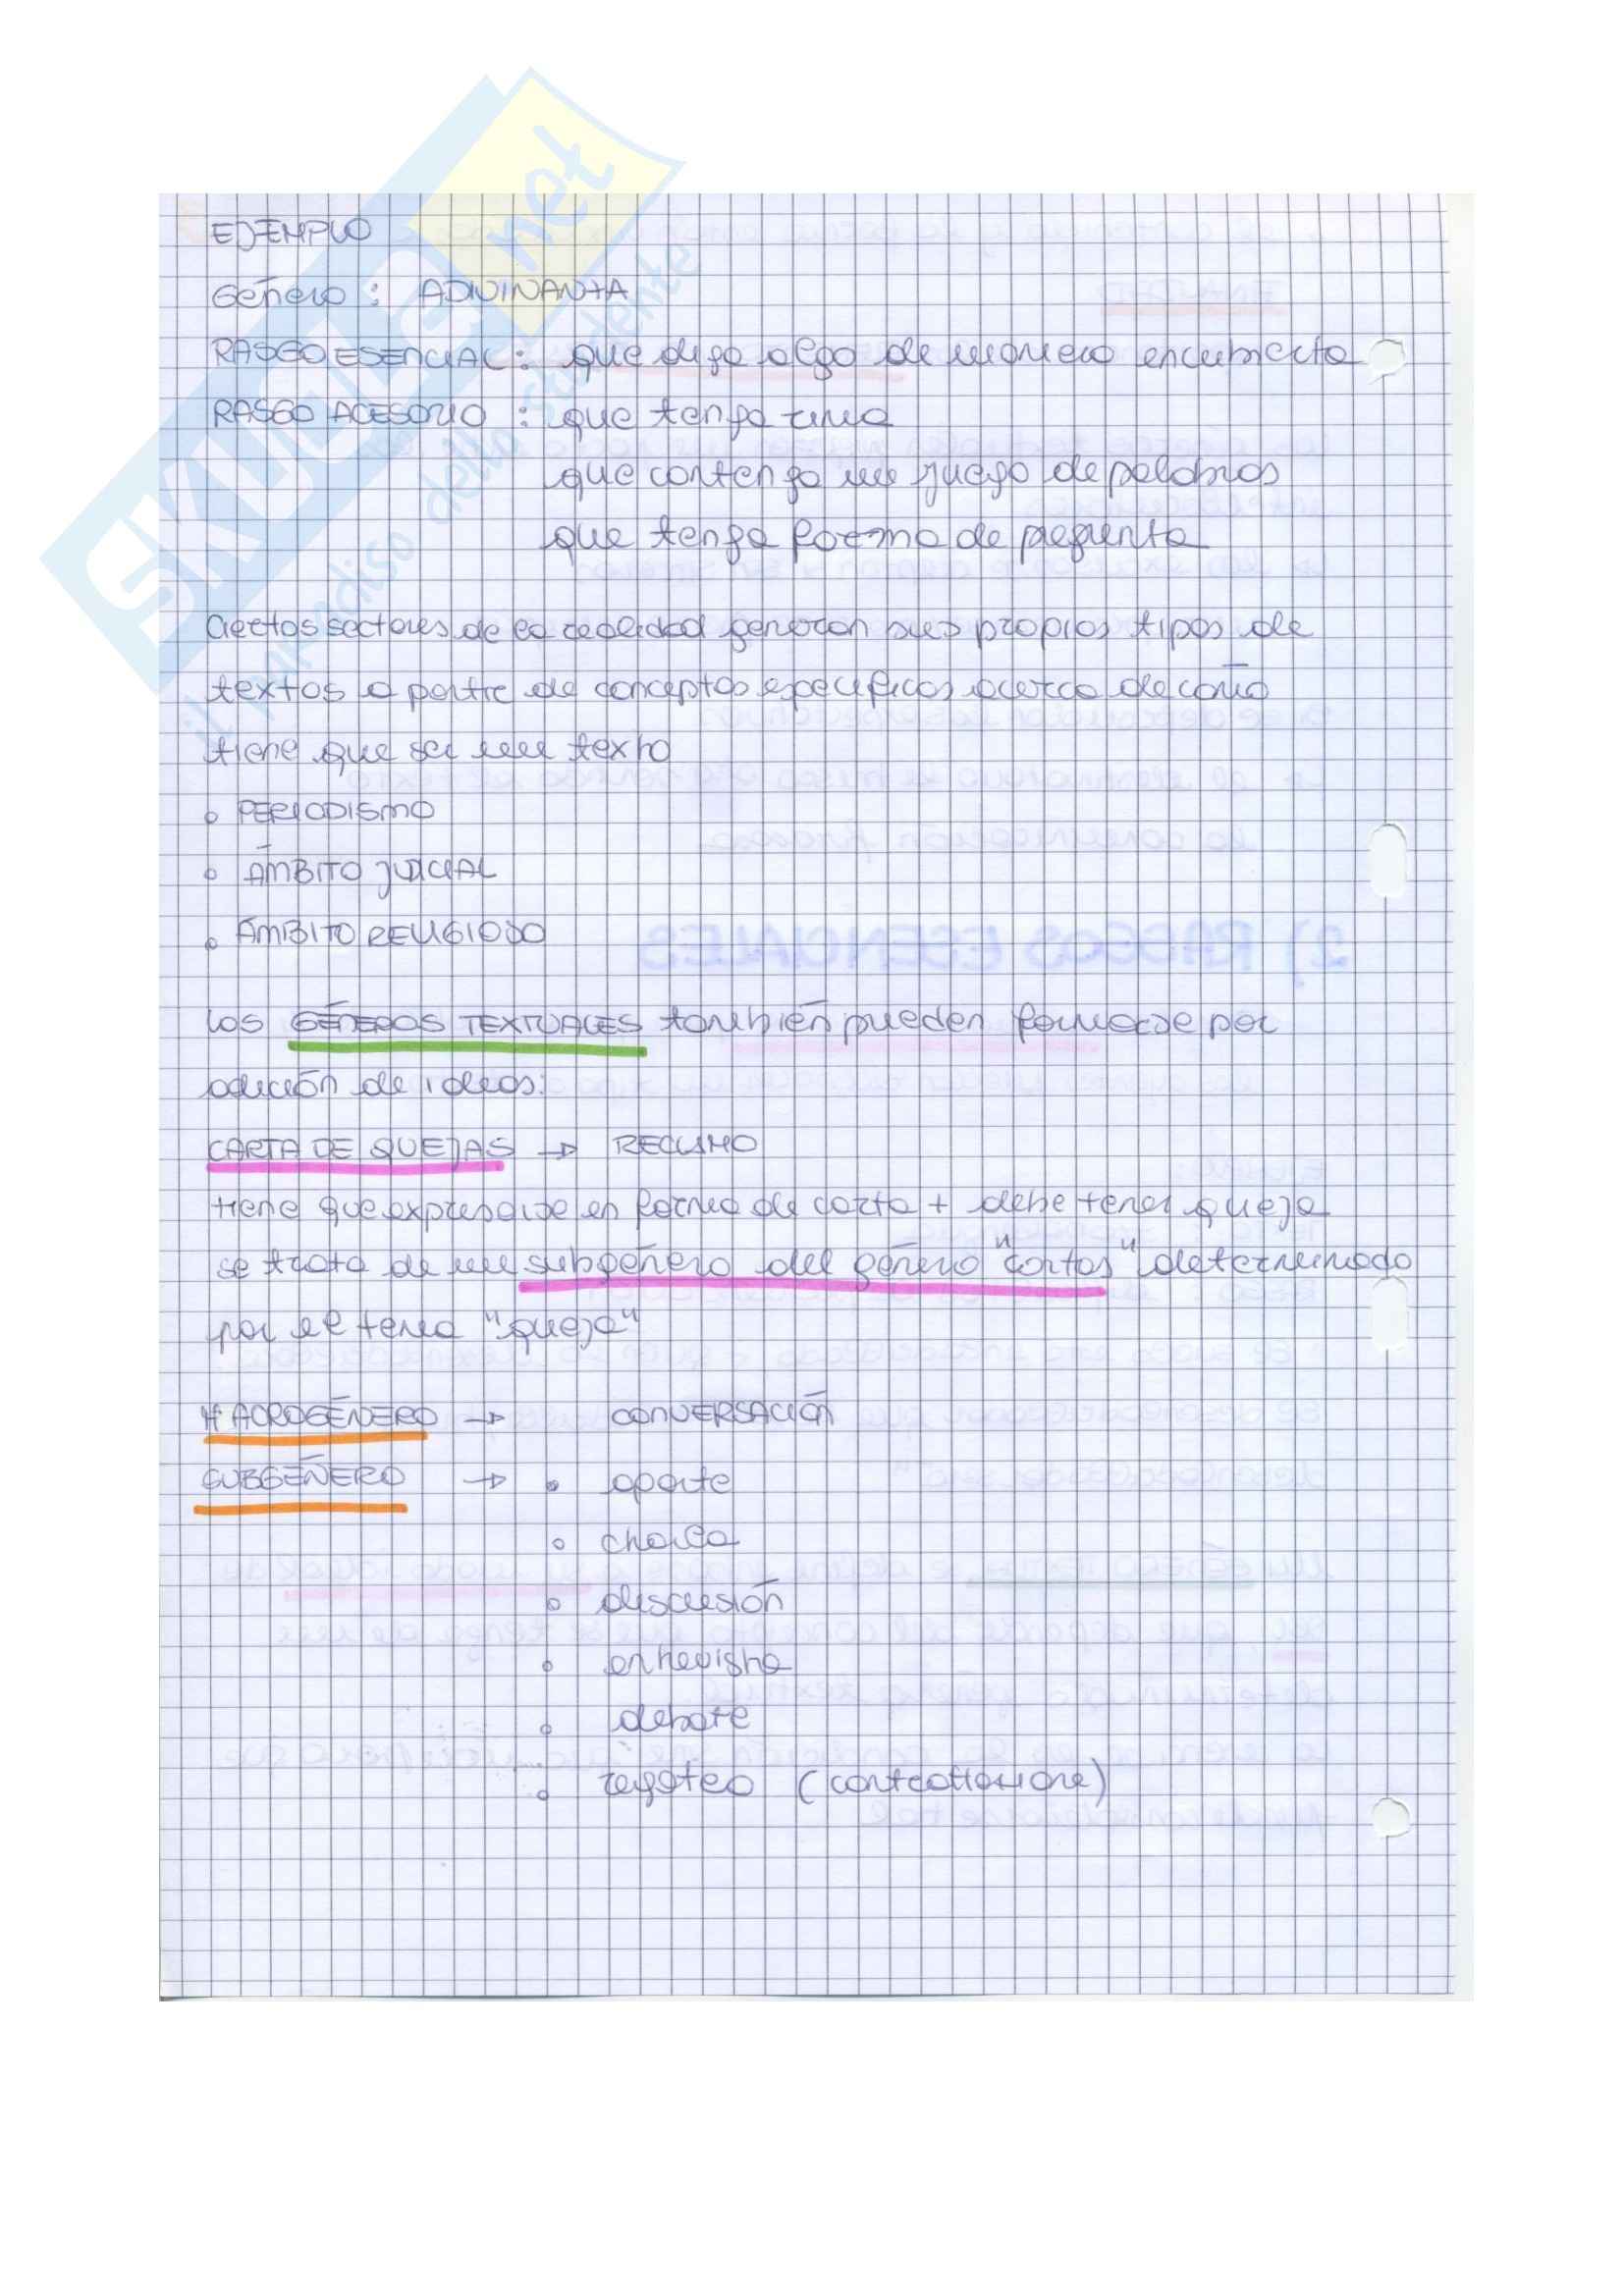 EJEMPLO
Género : ADIVINANZA
RASGO ESENCIAL : que diga algo de manera encubierta
RASGO ACESORIO : que tenga rima
que contenga un juego de palabras
que tenga forma de pregunta
Ciertos sectores de la realidad generan sus propios tipos de
textos a partir de conceptos específicos acerca de cómo
tiene que ser un texto
• PERIODISMO
• ÁMBITO JUDICIAL
• ÁMBITO RELIGIOSO
Los GÉNEROS TEXTUALES también pueden formarse por
adición de ideas:
CARTA DE QUEJAS → RECLAMO
tiene que expresarse en forma de carta + debe tener queja
se trata de un subgénero del género "cartas" determinado
por el tema "queja"
MACROGÉNERO → CONVERSACIÓN
SUBGÉNERO → • aparte
• charla
• discusión
• entrevista
• debate
• regateo (contrattazione)
SKUOLA.net
il paradiso dello studente